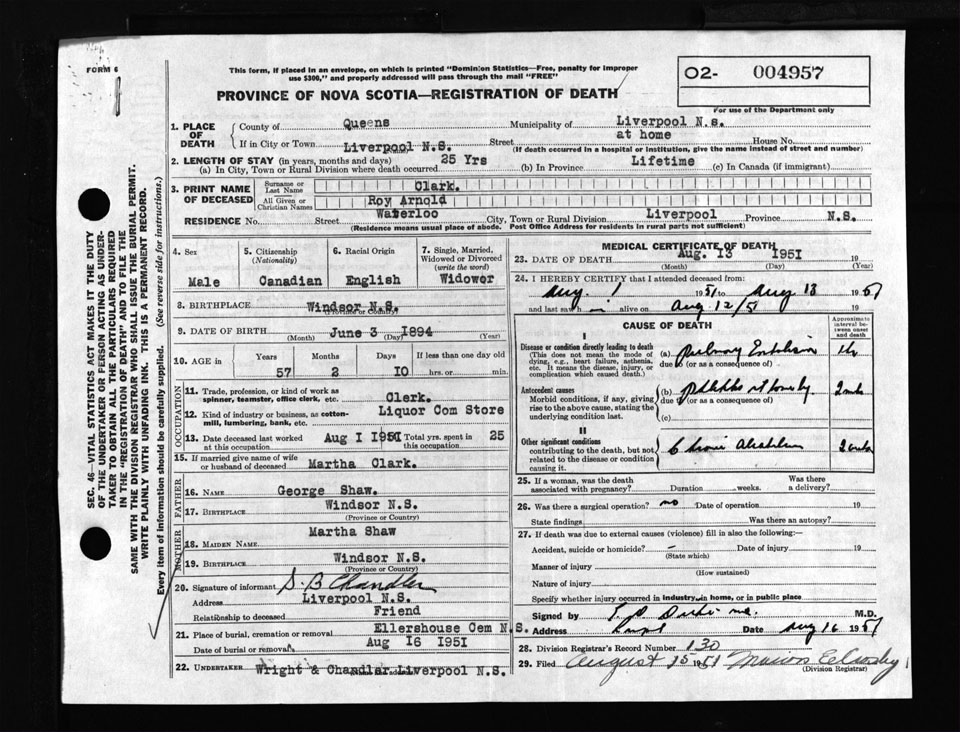 FORM 6
This form, if placed in an envelope, on which is printed "Dominion Statistics—Free, penalty for improper
use $300," and properly addressed will pass through the mail "FREE"
PROVINCE OF NOVA SCOTIA—REGISTRATION OF DEATH
O2- 004957
For use of the Department only
SEC. 46—VITAL STATISTICS ACT MAKES IT THE DUTY
OF THE UNDERTAKER OR PERSON ACTING AS UNDER-
TAKER TO OBTAIN ALL THE PARTICULARS REQUIRED
IN THE "REGISTRATION OF DEATH" AND TO FILE THE
SAME WITH THE DIVISION REGISTRAR WHO SHALL ISSUE THE BURIAL PERMIT.
WRITE PLAINLY WITH UNFADING INK. THIS IS A PERMANENT RECORD.
Every item of information should be carefully supplied. (See reverse side for instructions.)
1. PLACE OF DEATH
County of Queens Municipality of Liverpool N.s.
If in City or Town Liverpool N.S. Street at home House No.
(If death occurred in a hospital or institution, give the name instead of street and number)
2. LENGTH OF STAY (in years, months and days)
(a) In City, Town or Rural Division where death occurred 25 Yrs (b) In Province Lifetime (c) In Canada (if immigrant)
3. PRINT NAME OF DECEASED
Surname or Last Name Clark.
All Given or Christian Names Roy Arnold
RESIDENCE No. Street Waterloo City, Town or Rural Division Liverpool Province N.S.
(Residence means usual place of abode. Post Office Address for residents in rural parts not sufficient)
4. Sex
Male
5. Citizenship (Nationality)
Canadian
6. Racial Origin
English
7. Single, Married, Widowed or Divorced (write the word)
Widower
8. BIRTHPLACE Windsor N.S.
(Province or Country)
9. DATE OF BIRTH June 3 1894
(Month) (Day) (Year)
10. AGE in Years Months Days If less than one day old
57 2 10 hrs. or min.
OCCUPATION
11. Trade, profession, or kind of work as spinner, teamster, office clerk, etc. Clerk.
12. Kind of industry or business, as cotton-mill, lumbering, bank, etc. Liquor Com Store
13. Date deceased last worked at this occupation Aug I 1951 Total yrs. spent in this occupation 25
15. If married give name of wife or husband of deceased Martha Clark.
FATHER
16. NAME George Shaw.
17. BIRTHPLACE Windsor N.S.
(Province or Country)
MOTHER
18. MAIDEN NAME Martha Shaw
19. BIRTHPLACE Windsor N.S.
(Province or Country)
20. Signature of informant S. B Chandler
Address Liverpool N.S.
Relationship to deceased Friend
21. Place of burial, cremation or removal Ellershouse Cem N.S.
Date of burial or removal Aug 16 1951
22. UNDERTAKER Wright & Chandler Liverpool N.S.
MEDICAL CERTIFICATE OF DEATH
23. DATE OF DEATH Aug. 13 1951 19
(Month) (Day) (Year)
24. I HEREBY CERTIFY that I attended deceased from:
Aug. 1 1951 to Aug 13 1951
and last saw h alive on Aug 12/51 19
CAUSE OF DEATH
Approximate interval between onset and death
I
Disease or condition directly leading to death
(This does not mean the mode of dying, e.g., heart failure, asthenia, etc. It means the disease, injury, or complication which caused death.)
(a)
due to (or as a consequence of)
Antecedent causes
Morbid conditions, if any, giving rise to the above cause, stating the underlying condition last.
(b)
due to (or as a consequence of)
(c)
II
Other significant conditions
contributing to the death, but not related to the disease or condition causing it.
25. If a woman, was the death associated with pregnancy? Duration weeks. Was there a delivery?
26. Was there a surgical operation? no Date of operation 19
State findings Was there an autopsy?
27. If death was due to external causes (violence) fill in also the following:—
Accident, suicide or homicide? – Date of injury 19
(State which)
Manner of injury
(How sustained)
Nature of injury
Specify whether injury occurred in industry, in home, or in public place
Signed by M.D.
Address Date Aug 16 1951
28. Division Registrar's Record Number 130
29. Filed August 15 1951
(Division Registrar)